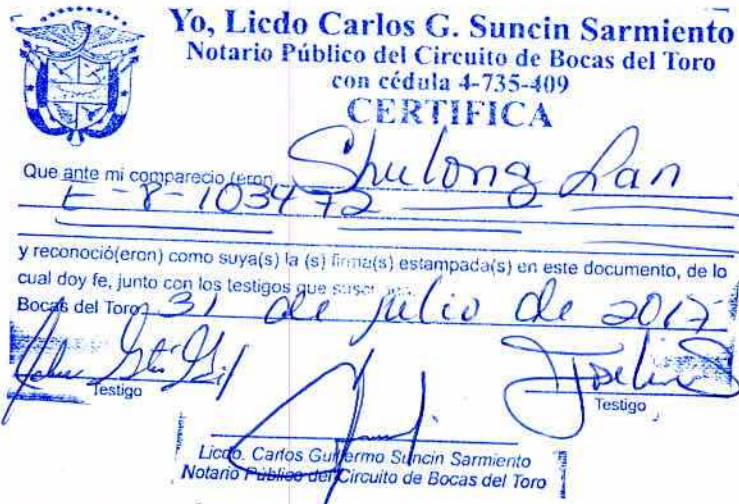 Yo, Licdo Carlos G. Suncin Sarmiento
Notario Público del Circuito de Bocas del Toro
con cédula 4-735-409
CERTIFICA
Que ante mi comparecio (eron Shulong Lan
E-8-103472
y reconoció(eron) como suya(s) la (s) firma(s) estampada(s) en este documento, de lo
cual doy fe, junto con los testigos que
Bocas del Toro 31 de julio de 2017
Testigo
Testigo
Licdo. Carlos Guillermo Suncin Sarmiento
Notario Público del Circuito de Bocas del Toro